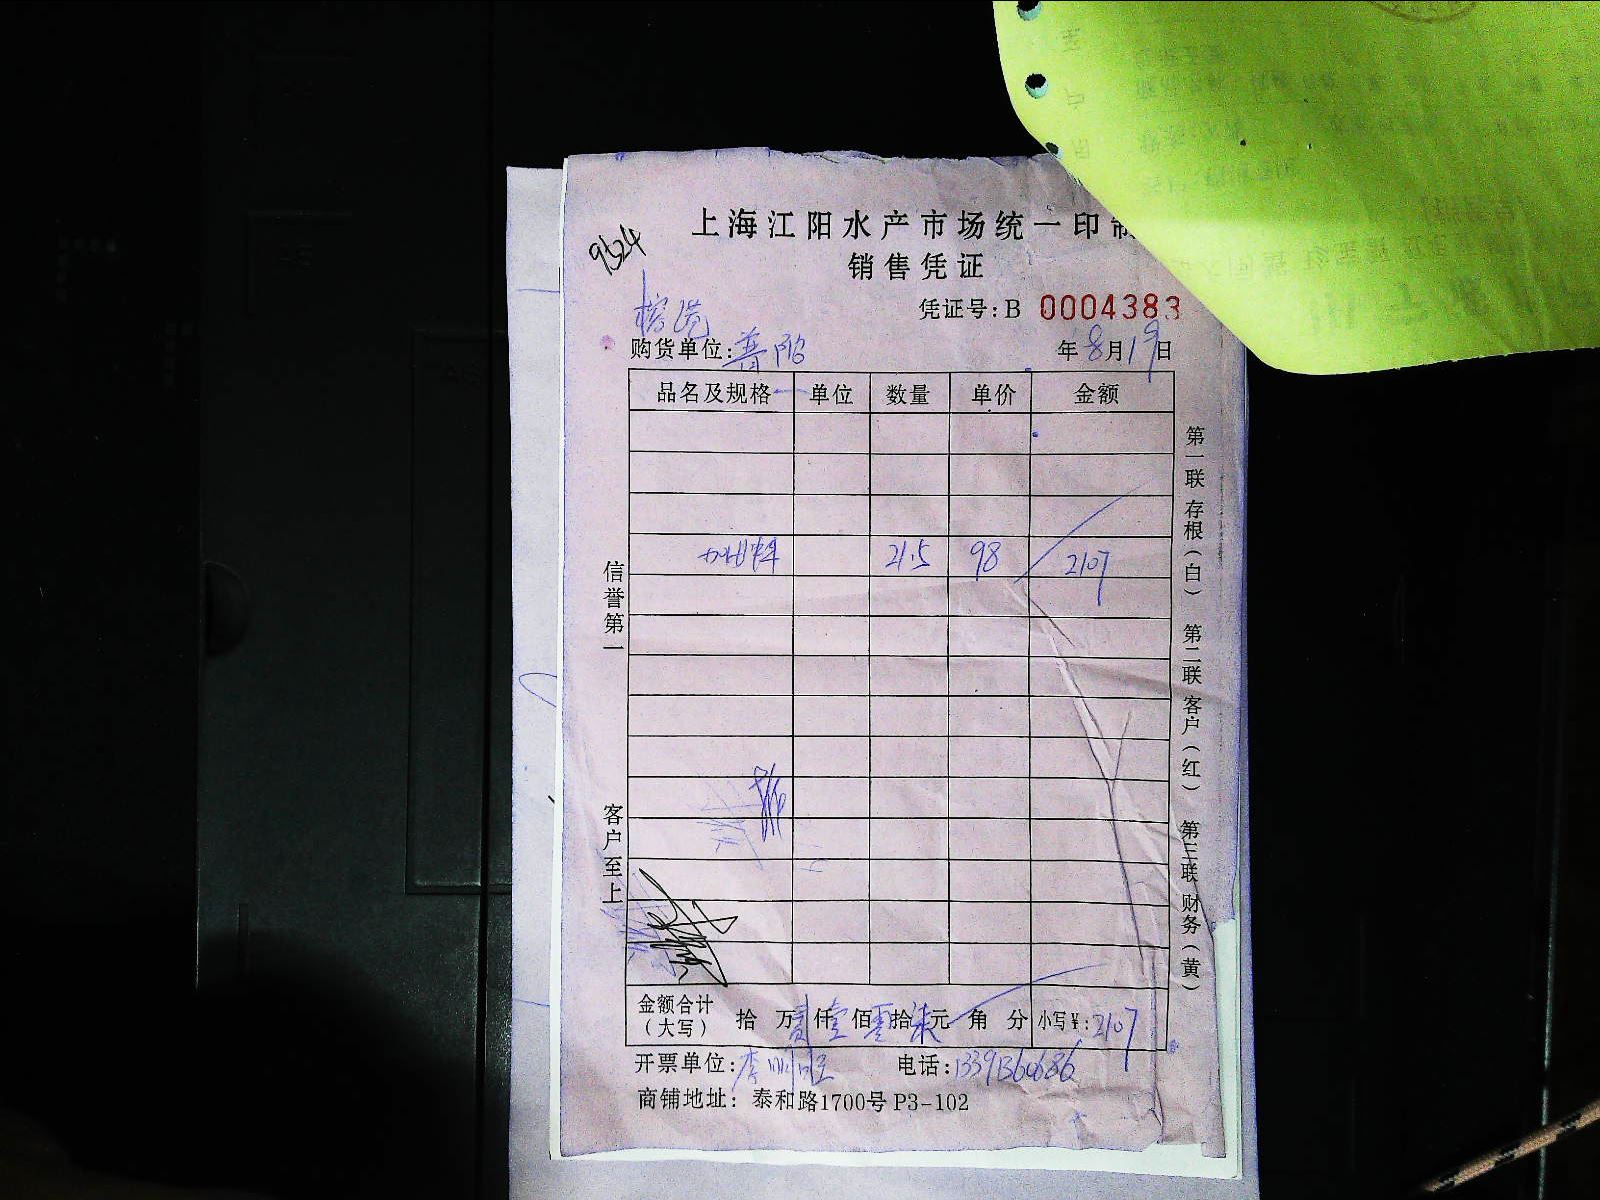 上海江阳水产市场统一印制
9524
销售凭证
凭证号: B 0004383
购货单位: 年8月19日
品名及规格 单位 数量 单价 金额
21.5 98 2107
信誉第一
客户至上
第一联 存根(白) 第二联 客户(红) 第三联 财务(黄)
金额合计(大写) 拾 万贰仟壹佰零拾柒元 角 分 小写¥:2107
开票单位:李 电话:13391360686
商铺地址: 泰和路1700号 P3-102